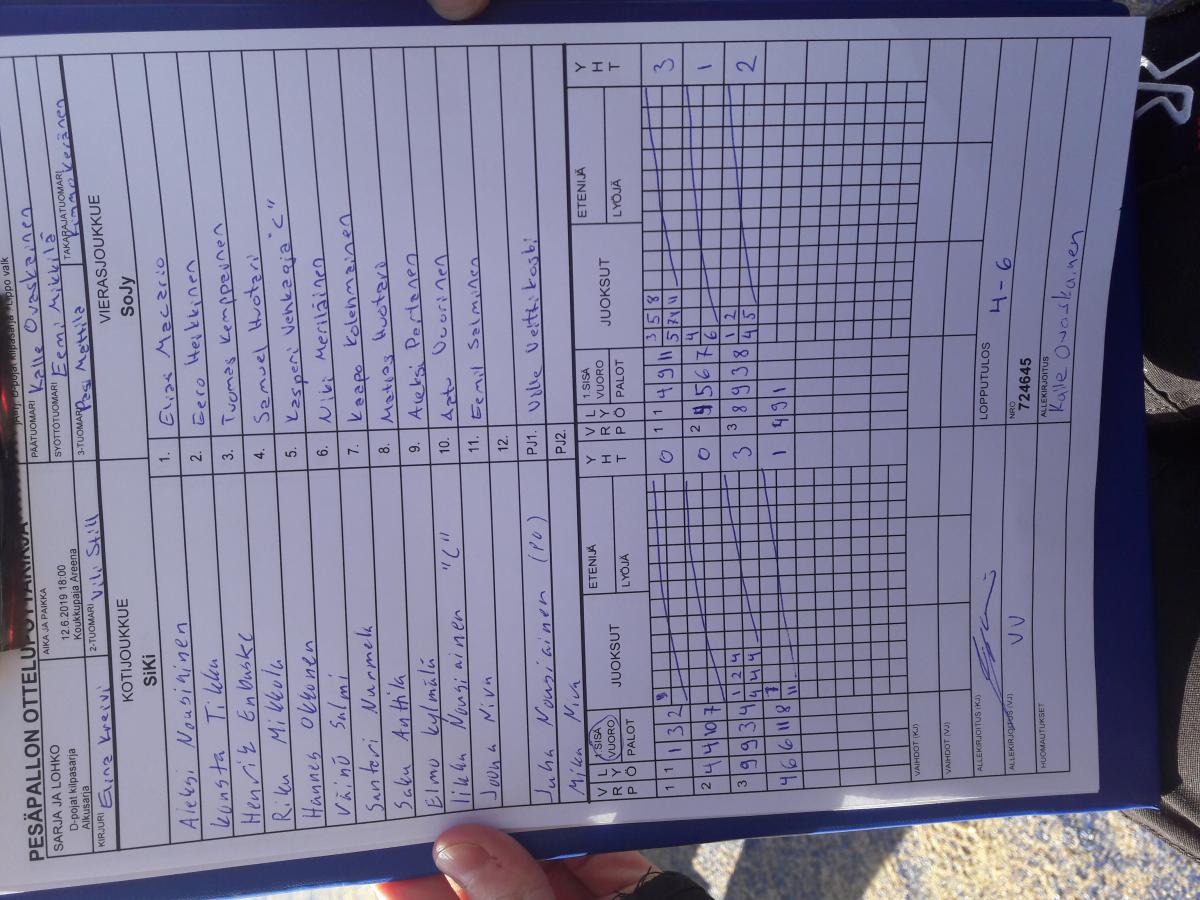 PESÄPALLON OTTELUPÖYTÄKIRJA
SARJA JA LOHKO
D-pojat kilpasarja
Alkusarja
AIKA JA PAIKKA
12.6.2019 18:00
Koukkupaja Areena
PÄÄTUOMARI Kalle Ovaskainen
SYÖTTÖTUOMARI Eemi Mikkilä
KIRJURI
2-TUOMARI
3-TUOMARI Pasi Mattila
TAKARAJATUOMARI Kimmo Keränen
KOTIJOUKKUE
SiKi
VIERASJOUKKUE
SoJy
Aleksi Nousiainen
1.
Elias Macario
Konsta Tikka
2.
Eero Heikkinen
Henri Enbuske
3.
Tuomas Kemppainen
Riku Mikkola
4.
Samuel Huotari
Hannes Okkonen
5.
Kasperi Venkaaja "C"
Väinö Salmi
6.
Niki Meriläinen
Santeri Nurmela
7.
Kaapo Kolehmainen
Saku Anttila
8.
Matias Huotari
Elmo Kylmälä
9.
Aleksi Perttanen
Iikka Nousiainen "C"
10.
Aatu Vuorinen
Joona Niva
11.
Eemil Salminen
12.
Juha Nousiainen (PJ)
PJ1.
Ville Veittikoski
Mika Niva
PJ2.
V P
L Y Ö
1.SISÄ
VUORO
PALOT
JUOKSUT
ETENIJÄ
LYÖJÄ
Y H T
1.SISÄ
VUORO
PALOT
JUOKSUT
ETENIJÄ
LYÖJÄ
Y H T
1 1 1 3 2
0
1 1 4 9 11
3 5 8
5 7 11
3
2 4 4 10 7
0
2 4 5 6 7
4
6
1
3 9 9 3 4
1 2 4
4 4 4
3
3 8 9 3 8
1 2
4 5
2
4 6 6 11 8
7
11
1
4 9 1
VAIHDOT (KJ)
VAIHDOT (VJ)
ALLEKIRJOITUS (KJ)
LOPPUTULOS 4-6
ALLEKIRJOITUS (VJ) VV
NRO
724645
HUOMAUTUKSET
ALLEKIRJOITUS
Kalle Ovaskainen